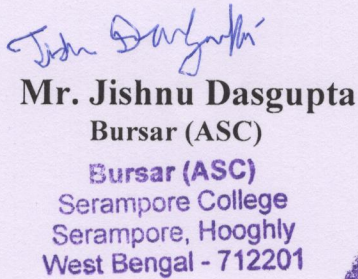 Jishnu Dasgupta
Mr. Jishnu Dasgupta
Bursar (ASC)
Bursar (ASC)
Serampore College
Serampore, Hooghly
West Bengal - 712201